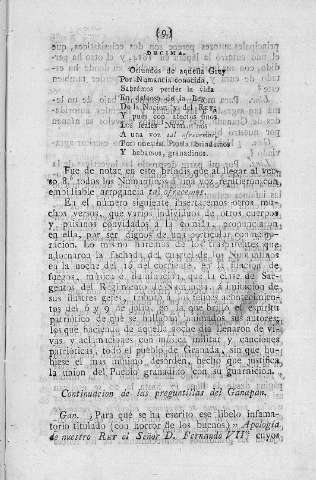 (9)
DECIMA.
Oriundos de aquella Grey
Por Numancia conocida,
Sabrémos perder la vida
En defensa de la Ley
De la Nacion y del REY;
Y pues con afectos finos
Los leales Numantinos
A una voz
Y bebamos, granadinos.
Fue de notar en este brindis que al llegar al ver-
so 8, todos los Numantinos á una voz repitieron con
embidiable arrogancia
En el número siguiente insertaremos otros mu-
chos versos, que varios individuos de otros cuerpos
y paisanos convidados á la comida, produxeron
en ella, por ser dignos de una particular conmemo-
racion. Lo mismo haremos de los trasparentes que
adornaron la fachada del quartel de los Numantinos
en la noche del 16 del corriente, en la funcion de
fuegos, música e iluminacion, que la clase de Sar-
gentos del Regimiento de Numancia, á imitacion de
sus ilustres gefes, tributó á los fenaes acontecimien-
tos del 6 y 9 de julio,
patriótico de que se hallaban animados sus autores:
los que haciendo de aquella noche dia llenaron de vi-
vas y aclamaciones con música militar y canciones
patrióticas, todo el pueblo de Granada, sin que hu-
biese el mas mínimo desorden, hecho que justifica
la union del Pueblo granadino con su guarnicion.
Continuacion de las preguntillas del Ganapan.
Gan. ¿Para qué se ha escrito ese libelo infama-
torio titulado (con horror de los buenos) Apología
de nuestro REY el Señor D. Fernando VII cuyos